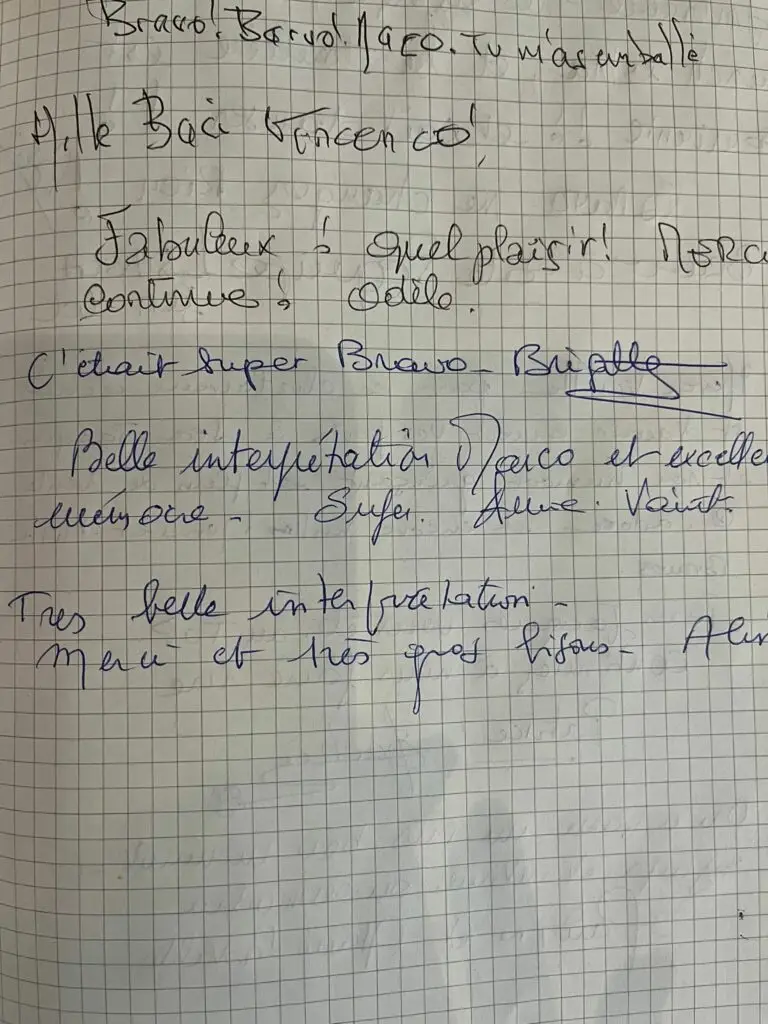 Bravo! Borvo! Maco. Tu m'as emballé
Mille Baci Vincenco!
Fabuleux! Quel plaisir!
Continue! Odile.
C'était super Bravo - Brigitte
Belle interprétation Marco et excelle
mémoire - Super. Anne.
Tres belle interprétation -
Merci et très gros bisous -